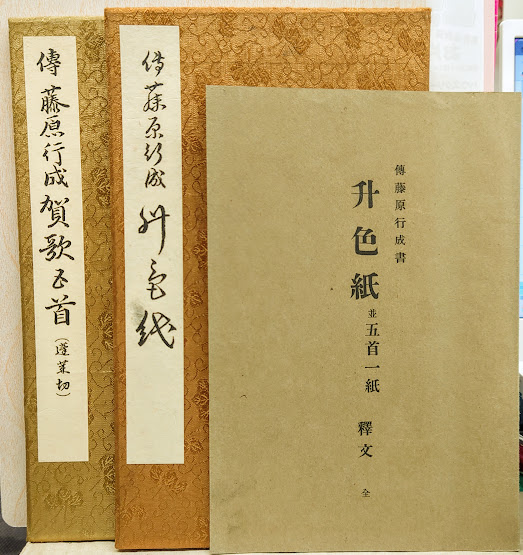 傳藤原行成書
升色紙 並 五首一紙 釋文 全
傳 藤原行成 升色紙
傳 藤原行成 賀歌五首(蓬莱切)